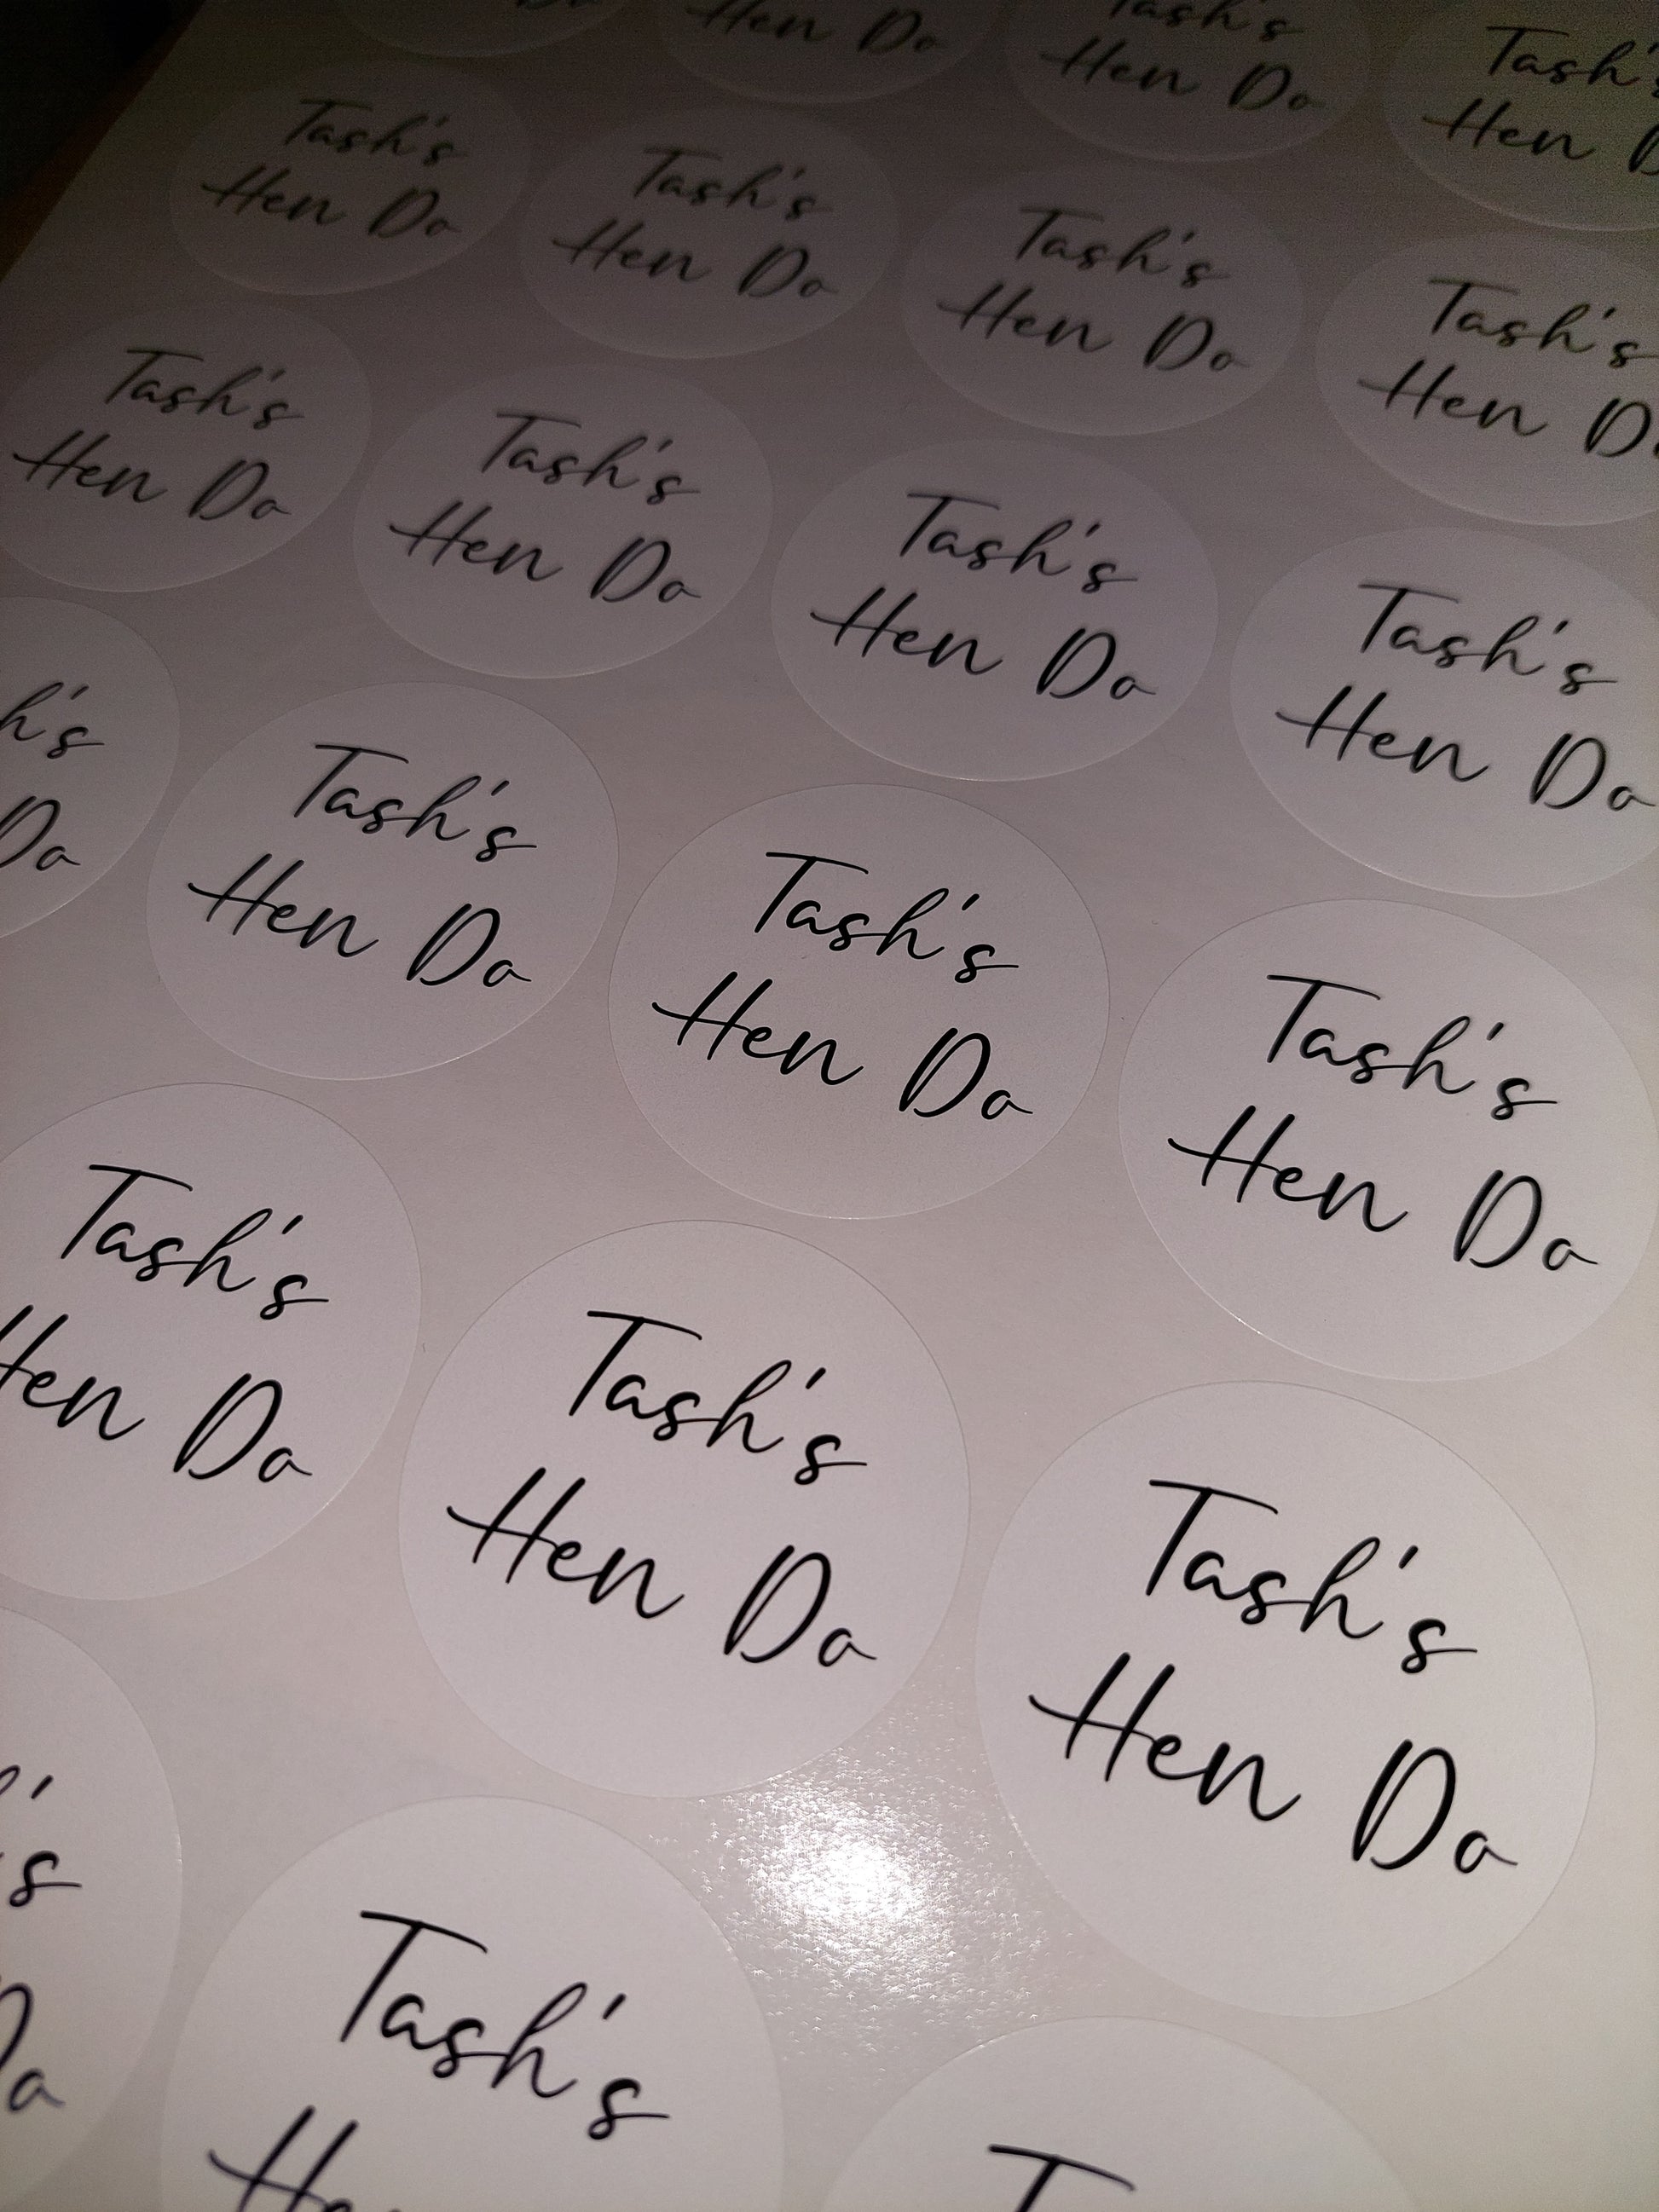 Hen Do
Tash's
Hen Do
Tash's
Hen
Tash's
Hen Do
Tash's
Hen Do
Tash's
Hen Do
Tash's
Hen Do
Tash's
Hen Do
Tash's
Hen Do
Tash's
Hen Do
Tash's
Hen Do
h's
Do
Tash's
Hen Do
Tash's
Hen Do
Tash's
Hen Do
Tash's
Hen Do
Tash's
Hen Do
Tash's
Hen Do
Tash's